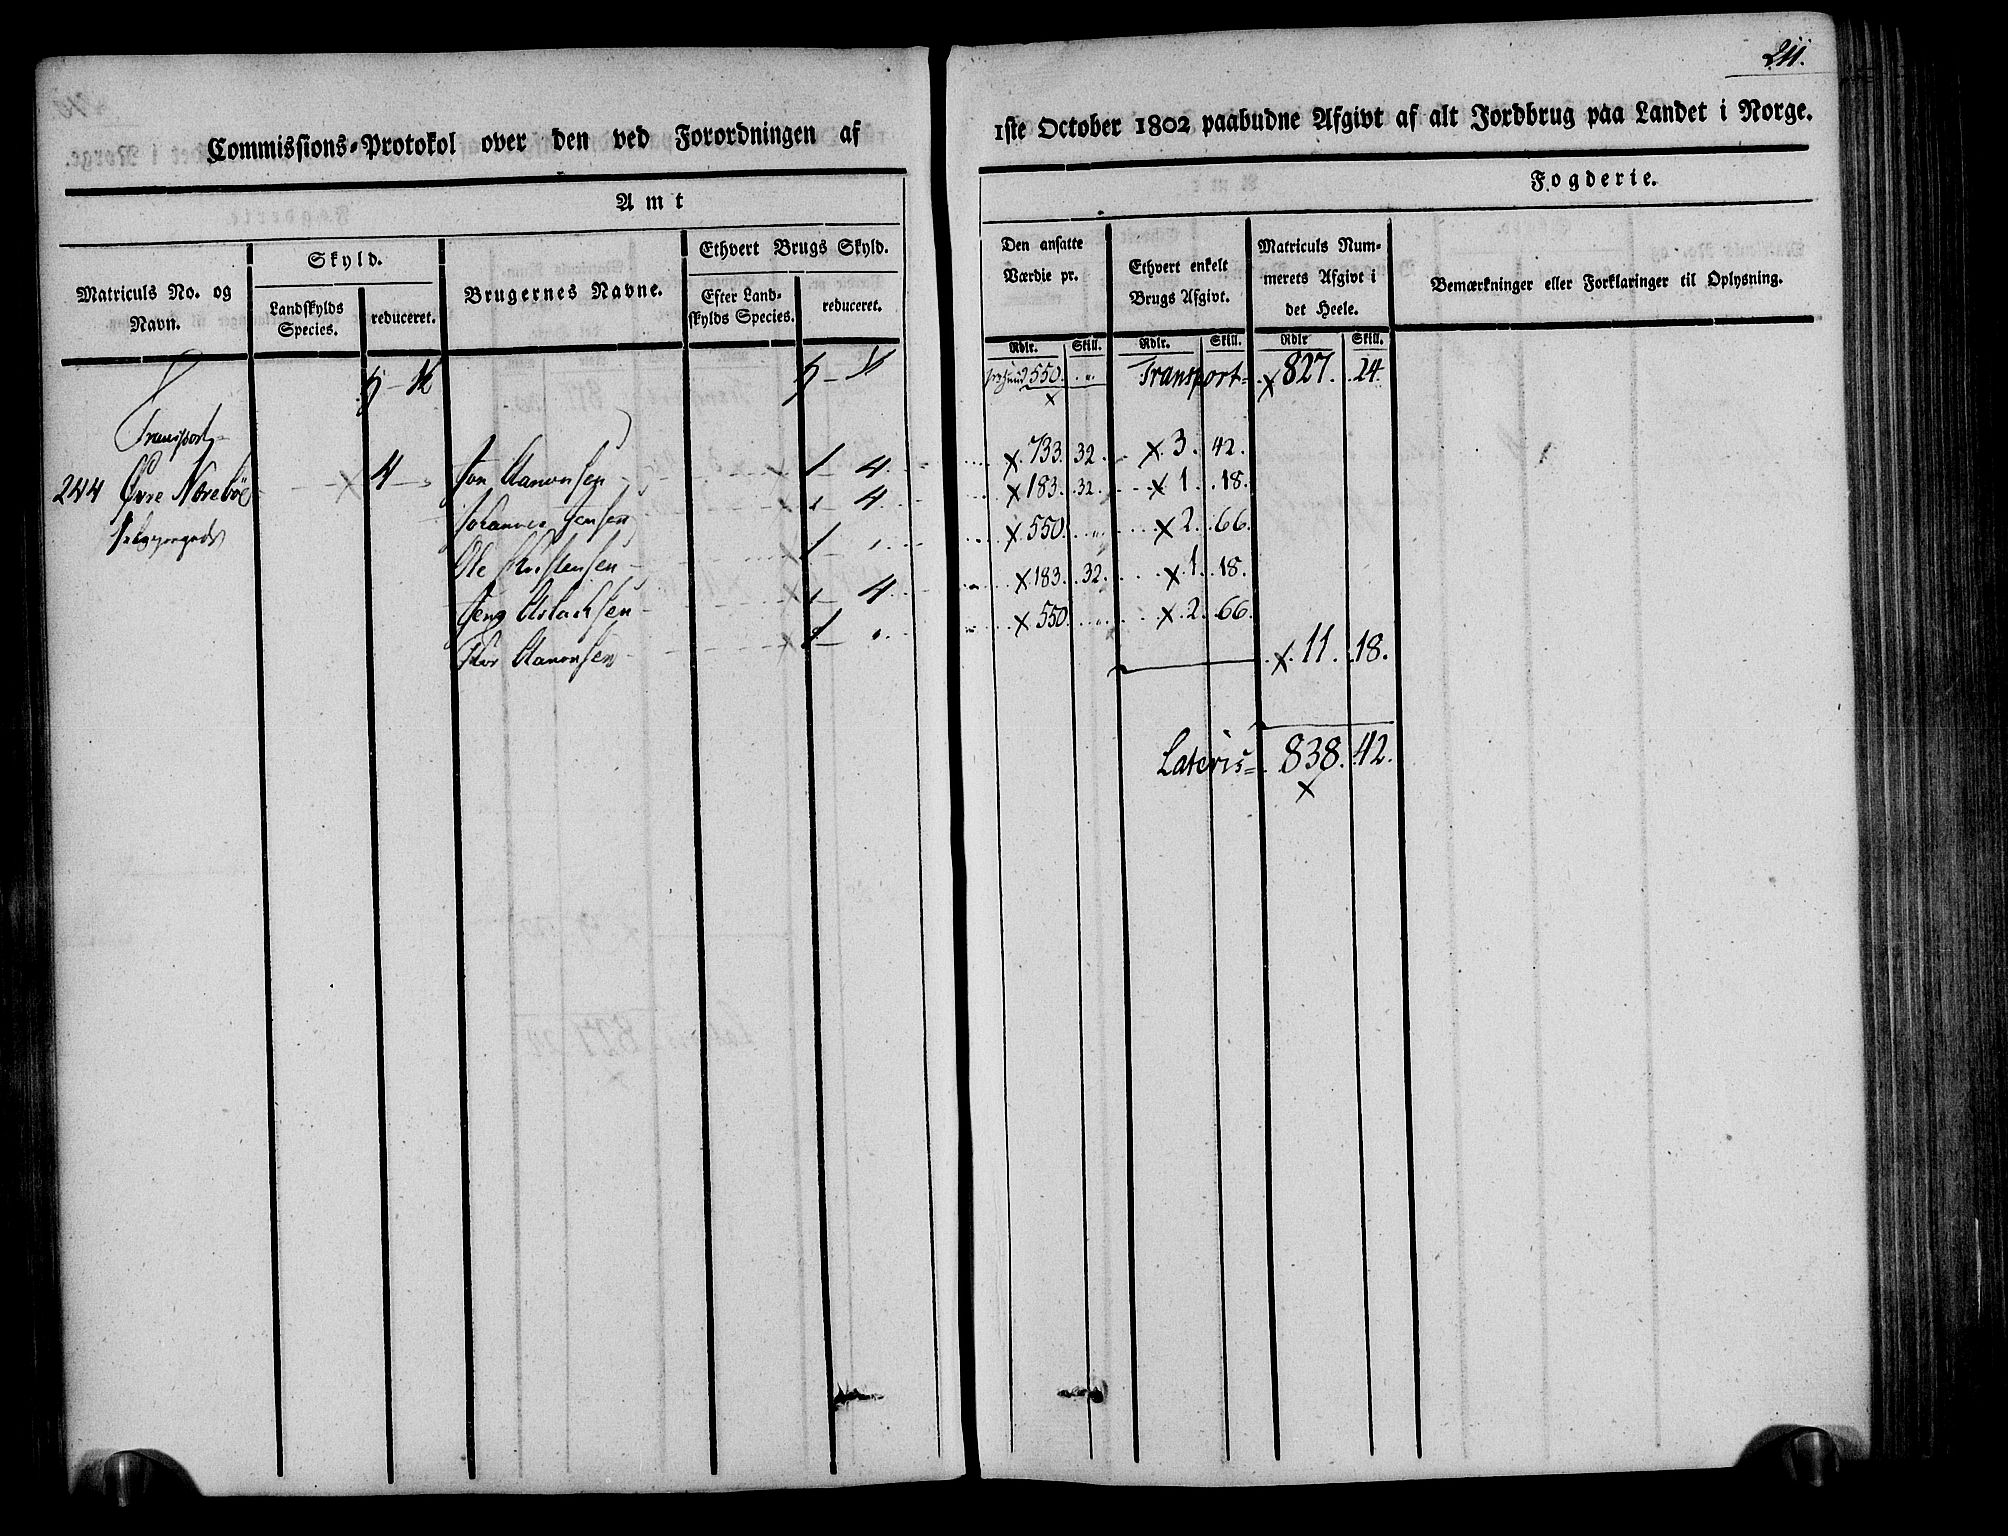 211.
Commissions-Protokol over den ved Forordningen af 1ste October 1802 paabudne Afgivt af alt Jordbrug paa Landet i Norge.
Amt
Fogderie.
Matriculs No. og Navn.
Skyld.
Landskylds Species.
reduceret.
Brugernes Navne.
Ethvert Brugs Skyld.
Efter Landskylds Species.
reduceret.
Den ansatte Værdie pr.
Ethvert enkelt Brugs Afgivt.
Matriculs Nummerets Afgivt i det Heele.
Bemærkninger eller Forklaringer til Oplysning.
Rdlr. Skill. Rdlr. Skill. Rdlr Skill.
Transport 550. Transport 827. 24.
244 Øvre Norebøe 4 Jon Aanonsen 1 4 733. 32. 3. 42.
Johannes Jensen 4 183. 32. 1. 18.
Ole Christensen 1 550. 2. 66.
Jens Aslachsen 4 183. 32. 1. 18.
Thor Aanonsen 1 550. 2. 66.
11. 18.
Lateris 838. 42.